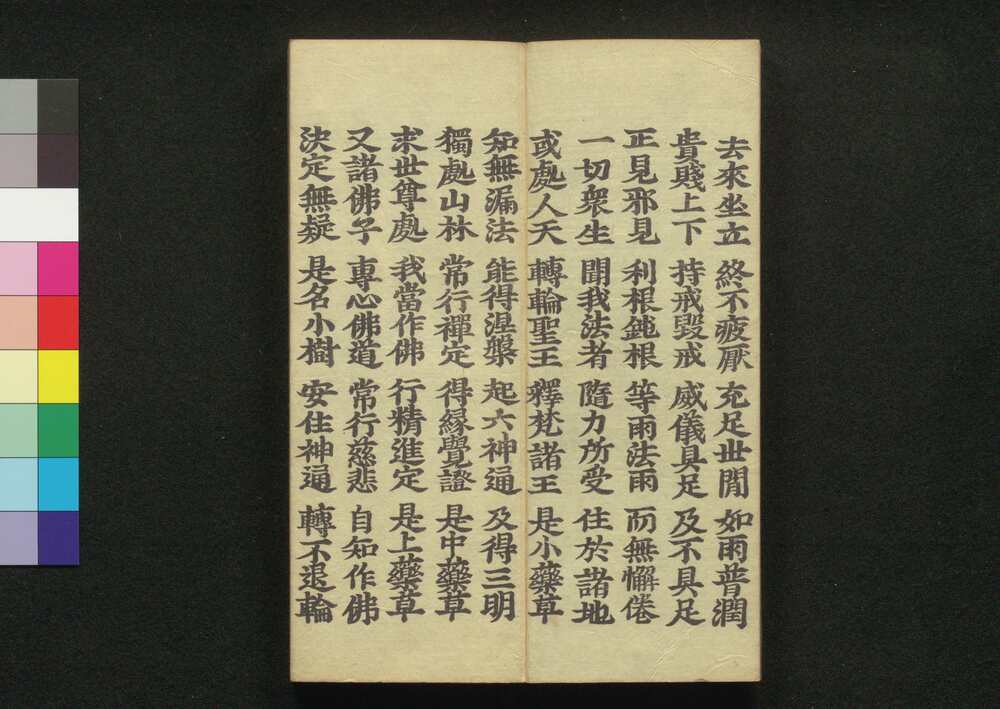 去來坐立 終不疲厭 充足世閒 如雨普潤
貴賤上下 持戒毀戒 威儀具足 及不具足
正見邪見 利根鈍根 等雨法雨 而無懈倦
一切衆生 聞我法者 隨力所受 住於諸地
或處人天 轉輪聖王 釋梵諸王 是小藥草
知無漏法 能得涅槃 起六神通 及得三明
獨處山林 常行禪定 得緣覺證 是中藥草
求世尊處 我當作佛 行精進定 是上藥草
又諸佛子 專心佛道 常行慈悲 自知作佛
決定無疑 是名小樹 安住神通 轉不退輪